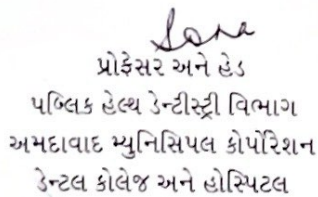 પ્રોફેસર અને હેડ
પબ્લિક હેલ્થ ડેન્ટીસ્ટ્રી વિભાગ
અમદાવાદ મ્યુનિસિપલ કોર્પોરેશન
ડેન્ટલ કોલેજ અને હોસ્પિટલ